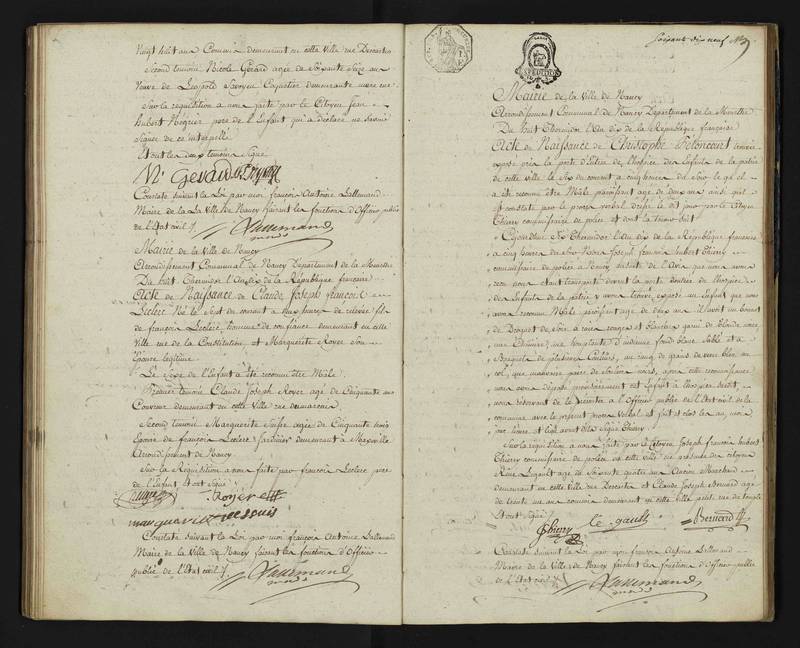 Vingt huit ans Commis demeurant en cette Ville rue Descartes
Second temoin Nicole Gerard agée de Soixante Seize ans
Veuve de Leopold Coquetier demeurante même rue
Sur la requisition a nous faite par le Citoyen Jean
Hubert pere de l'Enfant qui a declaré ne savoir
Signer de ce interpellé
Et ont les deux temoins Signé
Constaté suivant la Loi par moi françois Antoine Lallemand
Maire de la Ville de Nancy faisant les fonctions d'Officier public
de l'Etat civil
Lallemand
Mairie de la Ville de Nancy
Arrondissement Communal de Nancy Departement de la Meurthe
Du huit Thermidor l'an dix de la République francaise
Acte de Naissance de Claude Joseph françois
Leclerc Né le Sept du courant a heures de relevée fils
de françois Leclerc homme de confiance demeurant en cette
Ville rue de la Constitution, et Marguerite Royer Son
Epouse legitime
Le Sexe de l'Enfant a été reconnu être Male
Premier temoin Claude Joseph Royer agé de Cinquante ans
Couvreur demeurant en cette Ville rue
Second temoin Marguerite agée de Cinquante trois
Epouse de françois Leclerc Jardinier demeurant à Maxeville
Arrondissement de Nancy
Sur la Réquisition a nous faite par françois Leclerc pere
de l'Enfant Et ont Signé
Royer
Constaté suivant la Loi par moi françois Antoine Lallemand
Maire de la Ville de Nancy faisant les fonctions d'Officier
public de l'Etat civil
Lallemand
soixante dix neuf
Mairie de la Ville de Nancy
Arrondissement Communal de Nancy Departement de la Meurthe
Du huit Thermidor l'An dix de la République francaise
Acte de Naissance de Christophe Beloncourt trouvé
exposé près la porte d'Entrée de l'hospice des Enfants de la patrie
de cette Ville le Six du courant a cinq heures du Soir le quel
a été reconnu être Mâle paroissant agé de deux ans ainsi qu'il
est constaté par le proces verbal dressé le dit jour par le Citoyen
Thiery commissaire de police et dont la teneur Suit
Cejourdhuy Six Thermidor l'An dix de la République francaise
a cinq heures du Soir Nous Joseph francois hubert Thiery
commissaire de police a Nancy instruit de l'Avis que nous avons
recu nous etant transporté devant la porte d'entrée de l'hospice
des Enfants de la patrie y avons trouvé exposé un Enfant que nous
avons reconnu Mâle paroissant agé de deux ans Il avoit un bonnet
de Soie a raies rouges et blanches garni de blonde noire
une Chemise, une d'indienne fond blanc Sablé et a
Bouquets de plusieurs Couleurs, un rang de grains de verre bleu au
col, après cette reconnoissance
nous avons deposé provisoirement cet Enfant à l'hospice Susdit,
nous reservant de le presenter a l'Officier public de l'Etat civil de la
commune avec le present procès Verbal et fait et clos les an, mois
jour, heure et lieu avant dits Signé Thiery
Sur la requisition a nous faite par le Citoyen Joseph francois hubert
Thiery commissaire de police en cette ville en presence des citoyens
Legault agé de Soixante quatre ans Ancien Marchand
demeurant en cette Ville rue Descartes et Claude Joseph Bernard agé
de trente un ans commis demeurant en cette Ville petite rue
Et ont Signé
Thiery
le gault
Bernard
Constaté suivant la Loi par moi françois Antoine Lallemand
Maire de la Ville de Nancy faisant les fonctions d'Officier public
de l'Etat civil
Lallemand